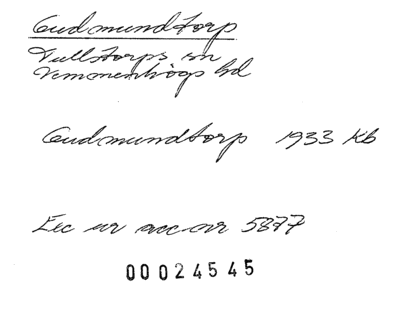 Gudmundtorp
Tullstorps sn
Vemmenhögs hd
Gudmundtorp 1933 Kb
Exc ur acc nr 5877
00024545